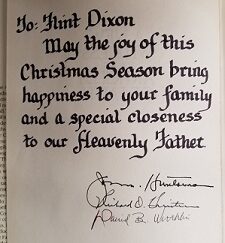 To: Flint Dixon
May the joy of this
Christmas Season bring
happiness to your family
and a special closeness
to our Heavenly Father.
Huntsman
Richard D.
David B.